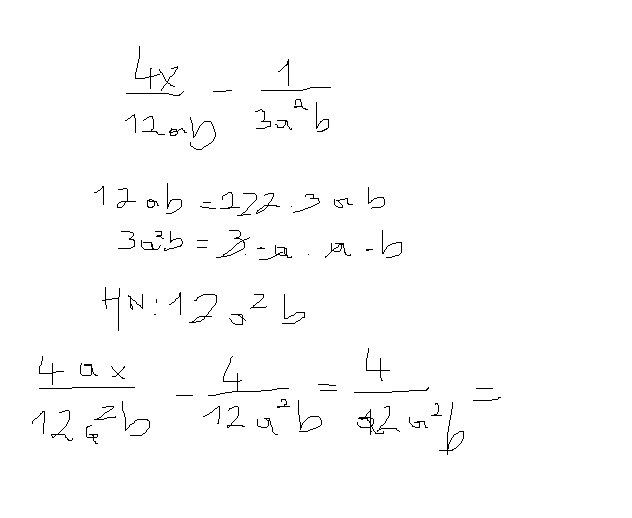 4x/12ab - 1/3a²b
12ab = 2·2·3 a b
3a²b = 3·a·a·b
HN: 12a²b
4ax/12a²b - 4/12a²b = 4/12a²b =